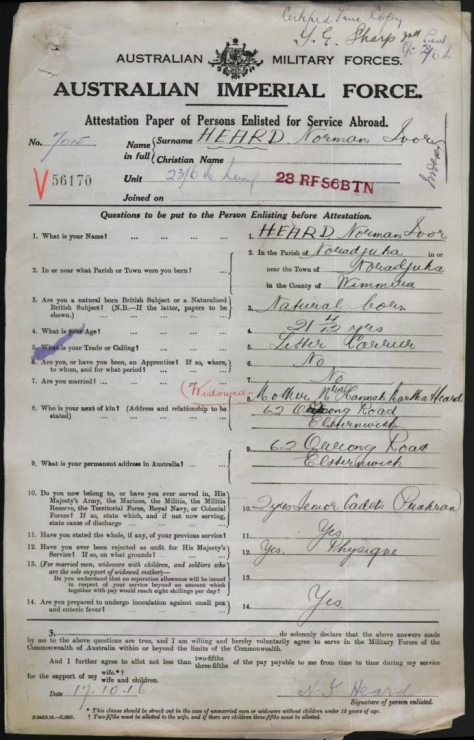 Certified True Copy
T. E. Sharp 2nd Lieut
AUSTRALIAN MILITARY FORCES.
AUSTRALIAN IMPERIAL FORCE.
Attestation Paper of Persons Enlisted for Service Abroad.
No. 7015 Name in full Surname HEARD Norman Ivor
Christian Name
V56170 Unit 23/6th Lieut 23 RFS6BTN
Joined on
Questions to be put to the Person Enlisting before Attestation.
1. What is your Name? ... 1. HEARD Norman Ivor
2. In or near what Parish or Town were you born? ... 2. In the Parish of Noradjuha in or
near the Town of Noradjuha
in the County of Wimmera
3. Are you a natural born British Subject or a Naturalized British Subject? (N.B.—If the latter, papers to be shown.) 3. Natural born
4. What is your Age? ... 4. 21 4/12 yrs
5. What is your Trade or Calling? ... 5. Letter Carrier
6. Are you, or have you been, an Apprentice? If so, where, to whom, and for what period? 6. No
7. Are you married? ... 7. No
8. Who is your next of kin? (Address and relationship to be stated) (Widowed) 8. Mother Mrs Hannah Martha Heard
62 Orrong Road
Elsternwick
9. What is your permanent address in Australia? ... 9. 62 Orrong Road
Elsternwick
10. Do you now belong to, or have you ever served in, His Majesty's Army, the Marines, the Militia, the Militia Reserve, the Territorial Force, Royal Navy, or Colonial Forces? If so, state which, and if not now serving, state cause of discharge 10. 2 yrs Senior Cadets (Prahran)
11. Have you stated the whole, if any, of your previous service? 11. Yes
12. Have you ever been rejected as unfit for His Majesty's Service? If so, on what grounds? 12. Yes. Physique
13. (For married men, widowers with children, and soldiers who are the sole support of widowed mother—
Do you understand that no separation allowance will be issued in respect of your service beyond an amount which together with pay would reach eight shillings per day? 13.
14. Are you prepared to undergo inoculation against small pox and enteric fever? 14. Yes.
I, do solemnly declare that the above answers made
by me to the above questions are true, and I am willing and hereby voluntarily agree to serve in the Military Forces of the
Commonwealth of Australia within or beyond the limits of the Commonwealth.
And I further agree to allot not less than two-fifths three-fifths of the pay payable to me from time to time during my service
for the support of my wife.*†
wife and children.
Date 17.10.16 N. I. Heard
Signature of person enlisted.
* This clause should be struck out in the case of unmarried men or widowers without children under 18 years of age.
† Two-fifths must be allotted to the wife, and if there are children three-fifths must be allotted.